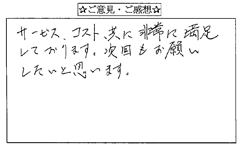 ☆ご意見・ご感想☆
サービス、コスト、共に非常に満足
しております。次回もお願い
したいと思います。